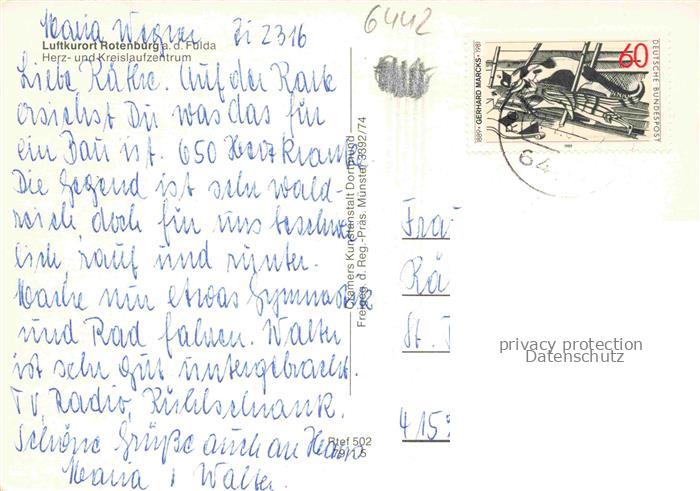 Maria Wegner Zi 2316
Luftkurort Rotenburg a. d. Fulda
Herz- und Kreislaufzentrum
Liebe Käthe. Auf der Karte
ersiehst Du was das für
ein Bau ist. 650 Herzkranke
Die Gegend ist sehr wald-
reich doch für uns beschwer
lich, rauf und runter.
Mache nur etwas Gymnastik
und Rad fahren. Walter
ist sehr gut untergebracht.
TV, Radio, Kühlschrank.
Schöne Grüße auch an
Maria + Walter.
Rtef 502
Cramers Kunstanstalt Dortmund
Freigeg. d. Reg.-Präs. Münster 3392/74
6442
60
DEUTSCHE BUNDESPOST
1889 - GERHARD MARCKS - 1981
64
Frau
Kä
St.
415
privacy protection
Datenschutz